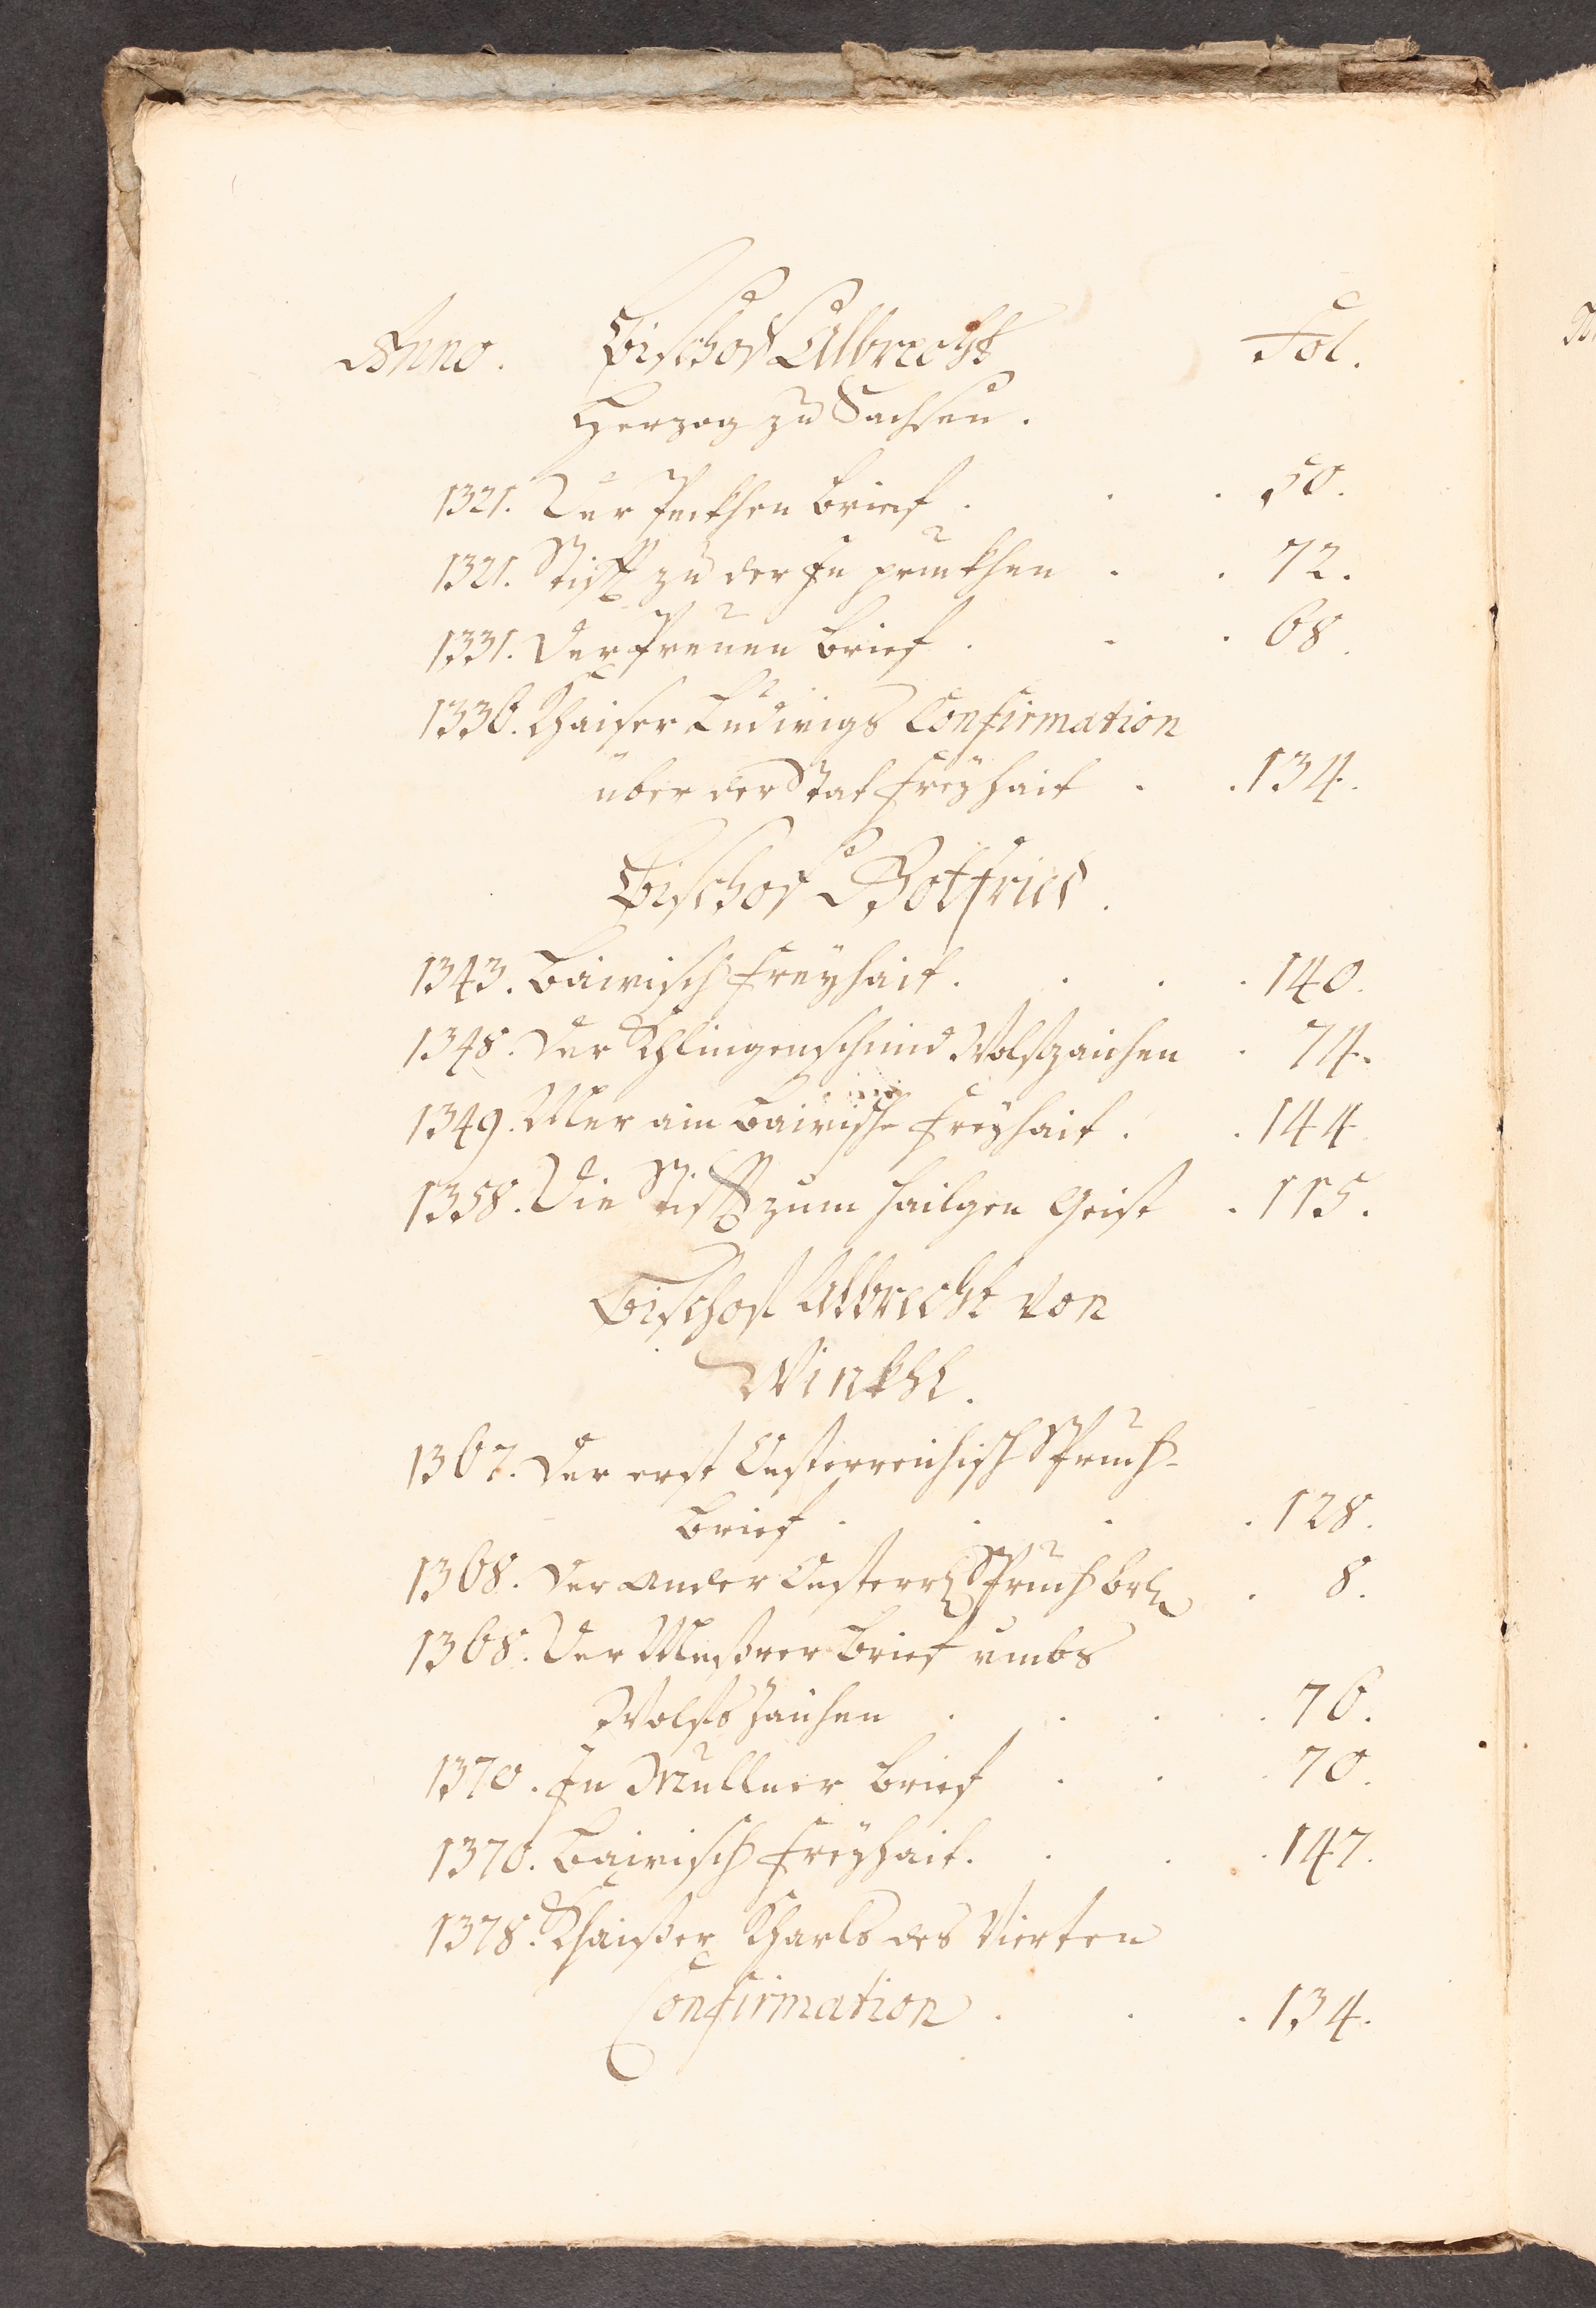 Anno. Bischof Albrecht Fol.
Herzog zu Sachsen.
1321. Der Peckhen Brief . . . 50.
1321. Stifft zu der In prukhen . . 72.
1331. Der Preuen Brief . . . 68.
1336. Khaiser Ludwigs Confirmation
über der Stat Freyhait . . 134.
Bischof Gottfried.
1343. Bairisch Freyhait . . . . 140.
1348. Der Khlingenschmid Wolfszaichen . 74.
1349. Mer ain Bairische Freyhait . . 144.
1358. Die Stifft zum hailgen Geist . 115.
Bischof Albrecht von
Winkhl.
1367. Der erst Oesterreichisch Spruch-
Brief . . . . 128.
1368. Der ander Oesterr. Spruch br. . 8.
1368. Der Messrer Brief umbs
Wolfszaichen . . . . 76.
1370. In Müllner Brief . . . 70.
1370. Bairisch Freyhait . . . . 147.
1378. Khaisser Kharls des Vierten
Confirmation . . . 134.